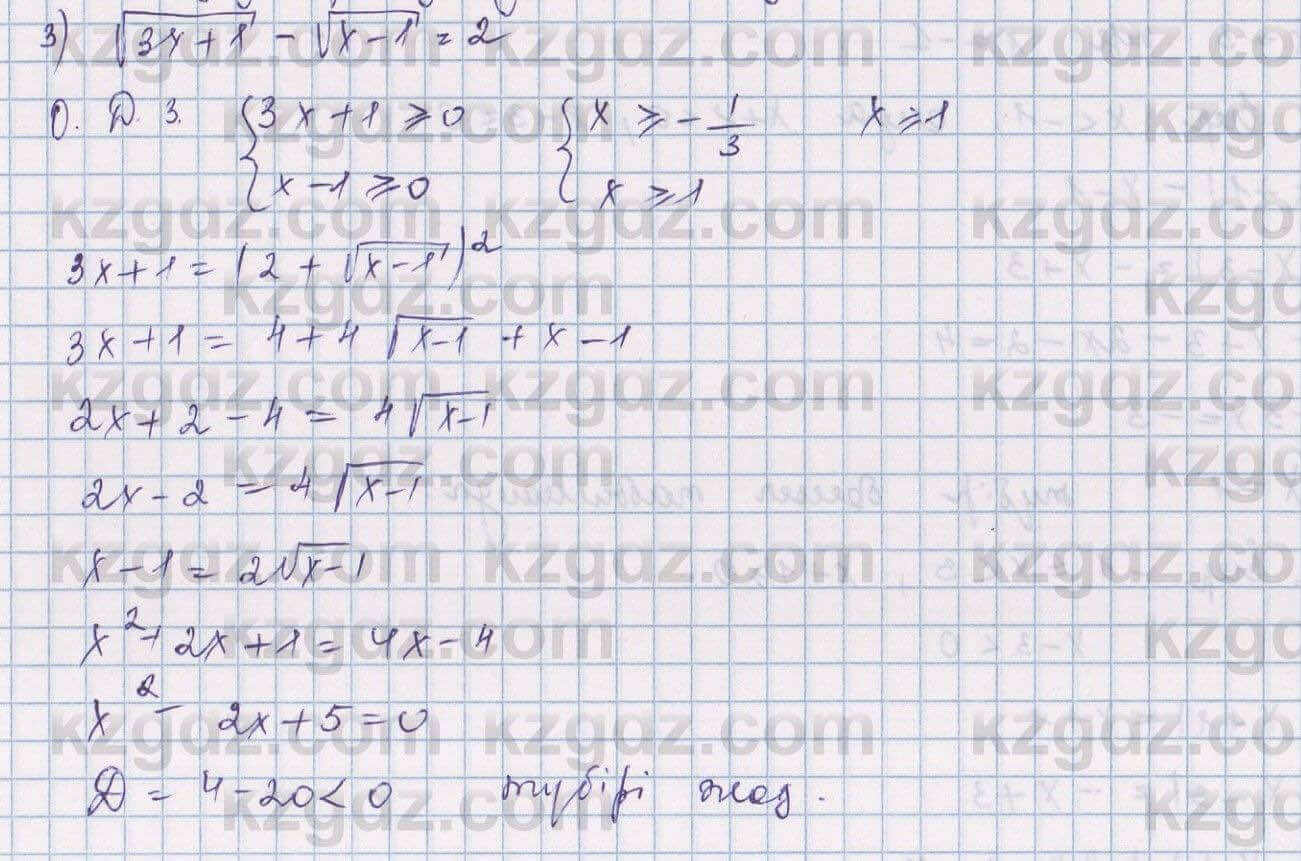 3) √(3x+1) - √(x-1) = 2
О. Д. З. {3x+1 ≥ 0 {x ≥ -1/3 x ≥ 1
{x-1 ≥ 0 {x ≥ 1
3x+1 = (2 + √(x-1))²
3x+1 = 4+4 √(x-1) + x-1
2x+2-4 = 4√(x-1)
2x-2 = 4√(x-1)
x-1 = 2√(x-1)
x²+2x+1 = 4x-4
x² - 2x+5=0
D = 4-20<0 түбірі жоқ.
kzgdz.com